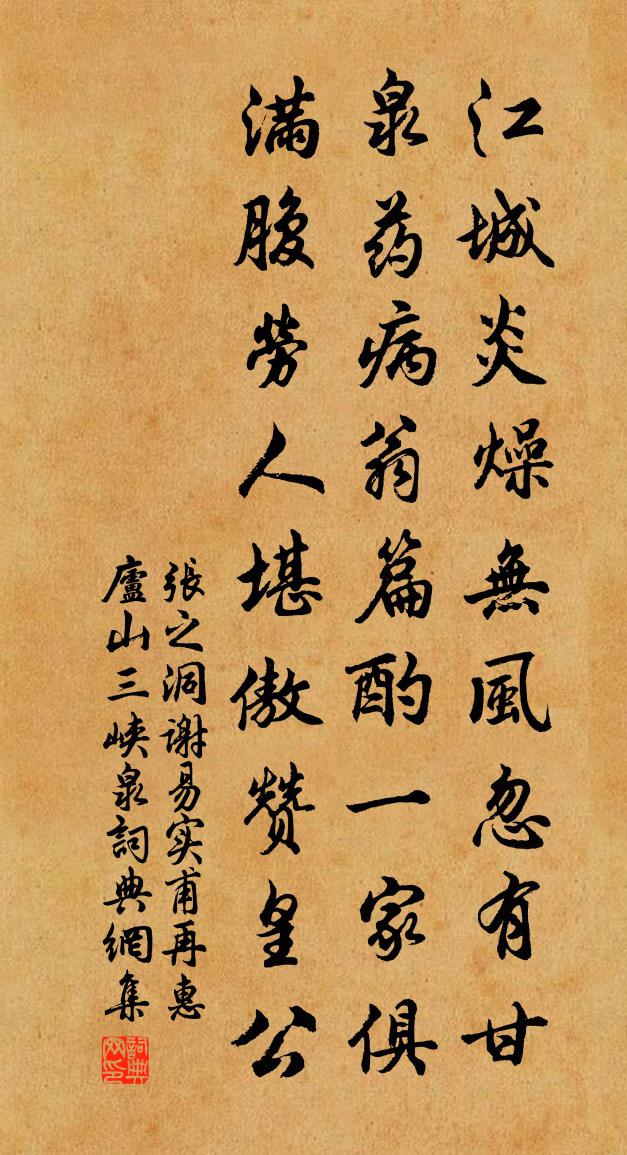 江城炎燥無風忽有甘
泉药病翁篇酌一家俱
滿腹勞人堪傲贊皇公
張之洞谢易实甫再惠
廬山三峡泉詞典網集
詞典网印